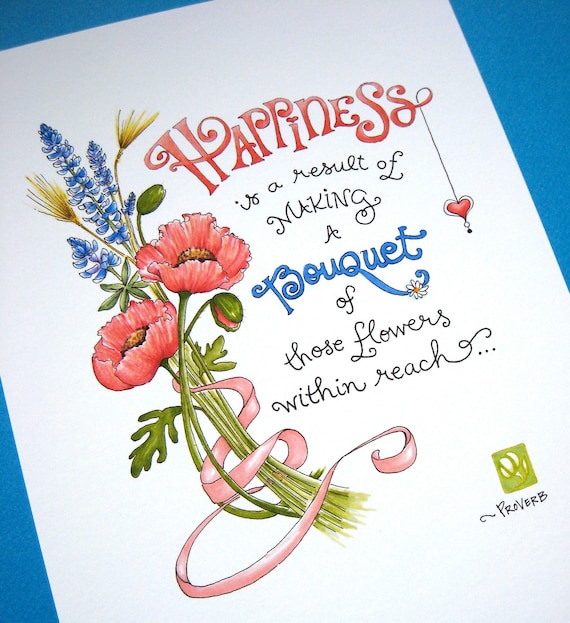 HAPPINESS
is a result of
MAKING
A
BOUQUET
of
those flowers
within reach...
~PROVERB